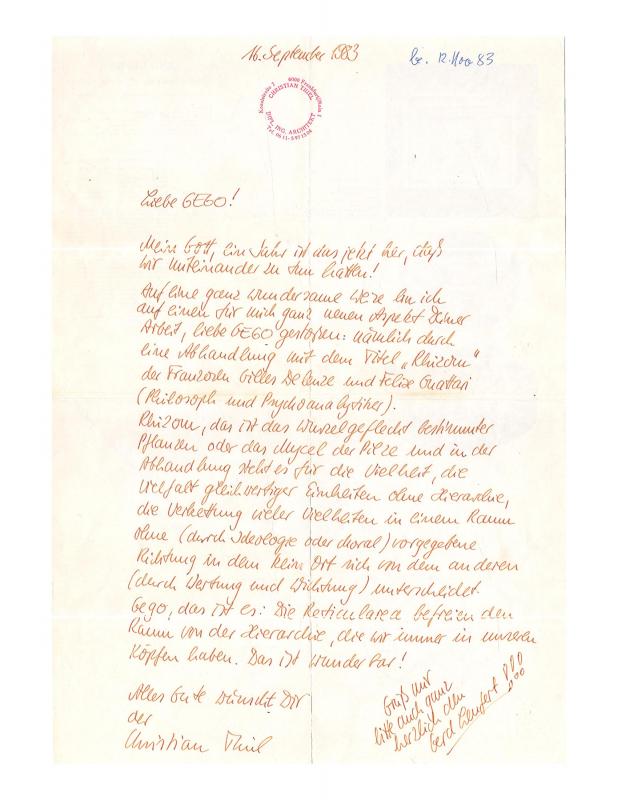 16. September 1983
be. 12. Nov 83
Kurfstraße 2 6000 Frankfurt/Main 1
CHRISTIAN THIEL
DIPL. ING. ARCHITEKT
Liebe GEGO!
Mein Gott, ein Jahr ist das jetzt her, daß
wir miteinander zu tun hatten!
Auf eine ganz wundersame Weise bin ich
auf einen für mich ganz neuen Aspekt Deiner
Arbeit, liebe GEGO gestoßen: nämlich durch
eine Abhandlung mit dem Titel „Rhizom“
der Franzosen Gilles Deleuze und Felix Guattari
(Philosoph und Psychoanalytiker).
Rhizom, das ist das Wurzelgeflecht bestimmter
Pflanzen oder das Mycel der Pilze und in der
Abhandlung steht es für die Vielheit, die
Vielfalt gleichwertiger Einheiten ohne Hierarchie,
die Verkettung vieler Vielheiten in einem Raum
ohne (durch Ideologie oder Moral) vorgegebene
Richtung in dem kein Ort sich von dem anderen
(durch Wertung und Wichtung) unterscheidet.
Gego, das ist es: Die Reticularea befreien den
Raum von der Hierarchie, die wir immer in unseren
Köpfen haben. Das ist wunderbar!
Alles Gute wünscht Dir
der
Christian Thiel
Grüß mir
bitte auch ganz
herzlich den
Gerd Leufert!!!